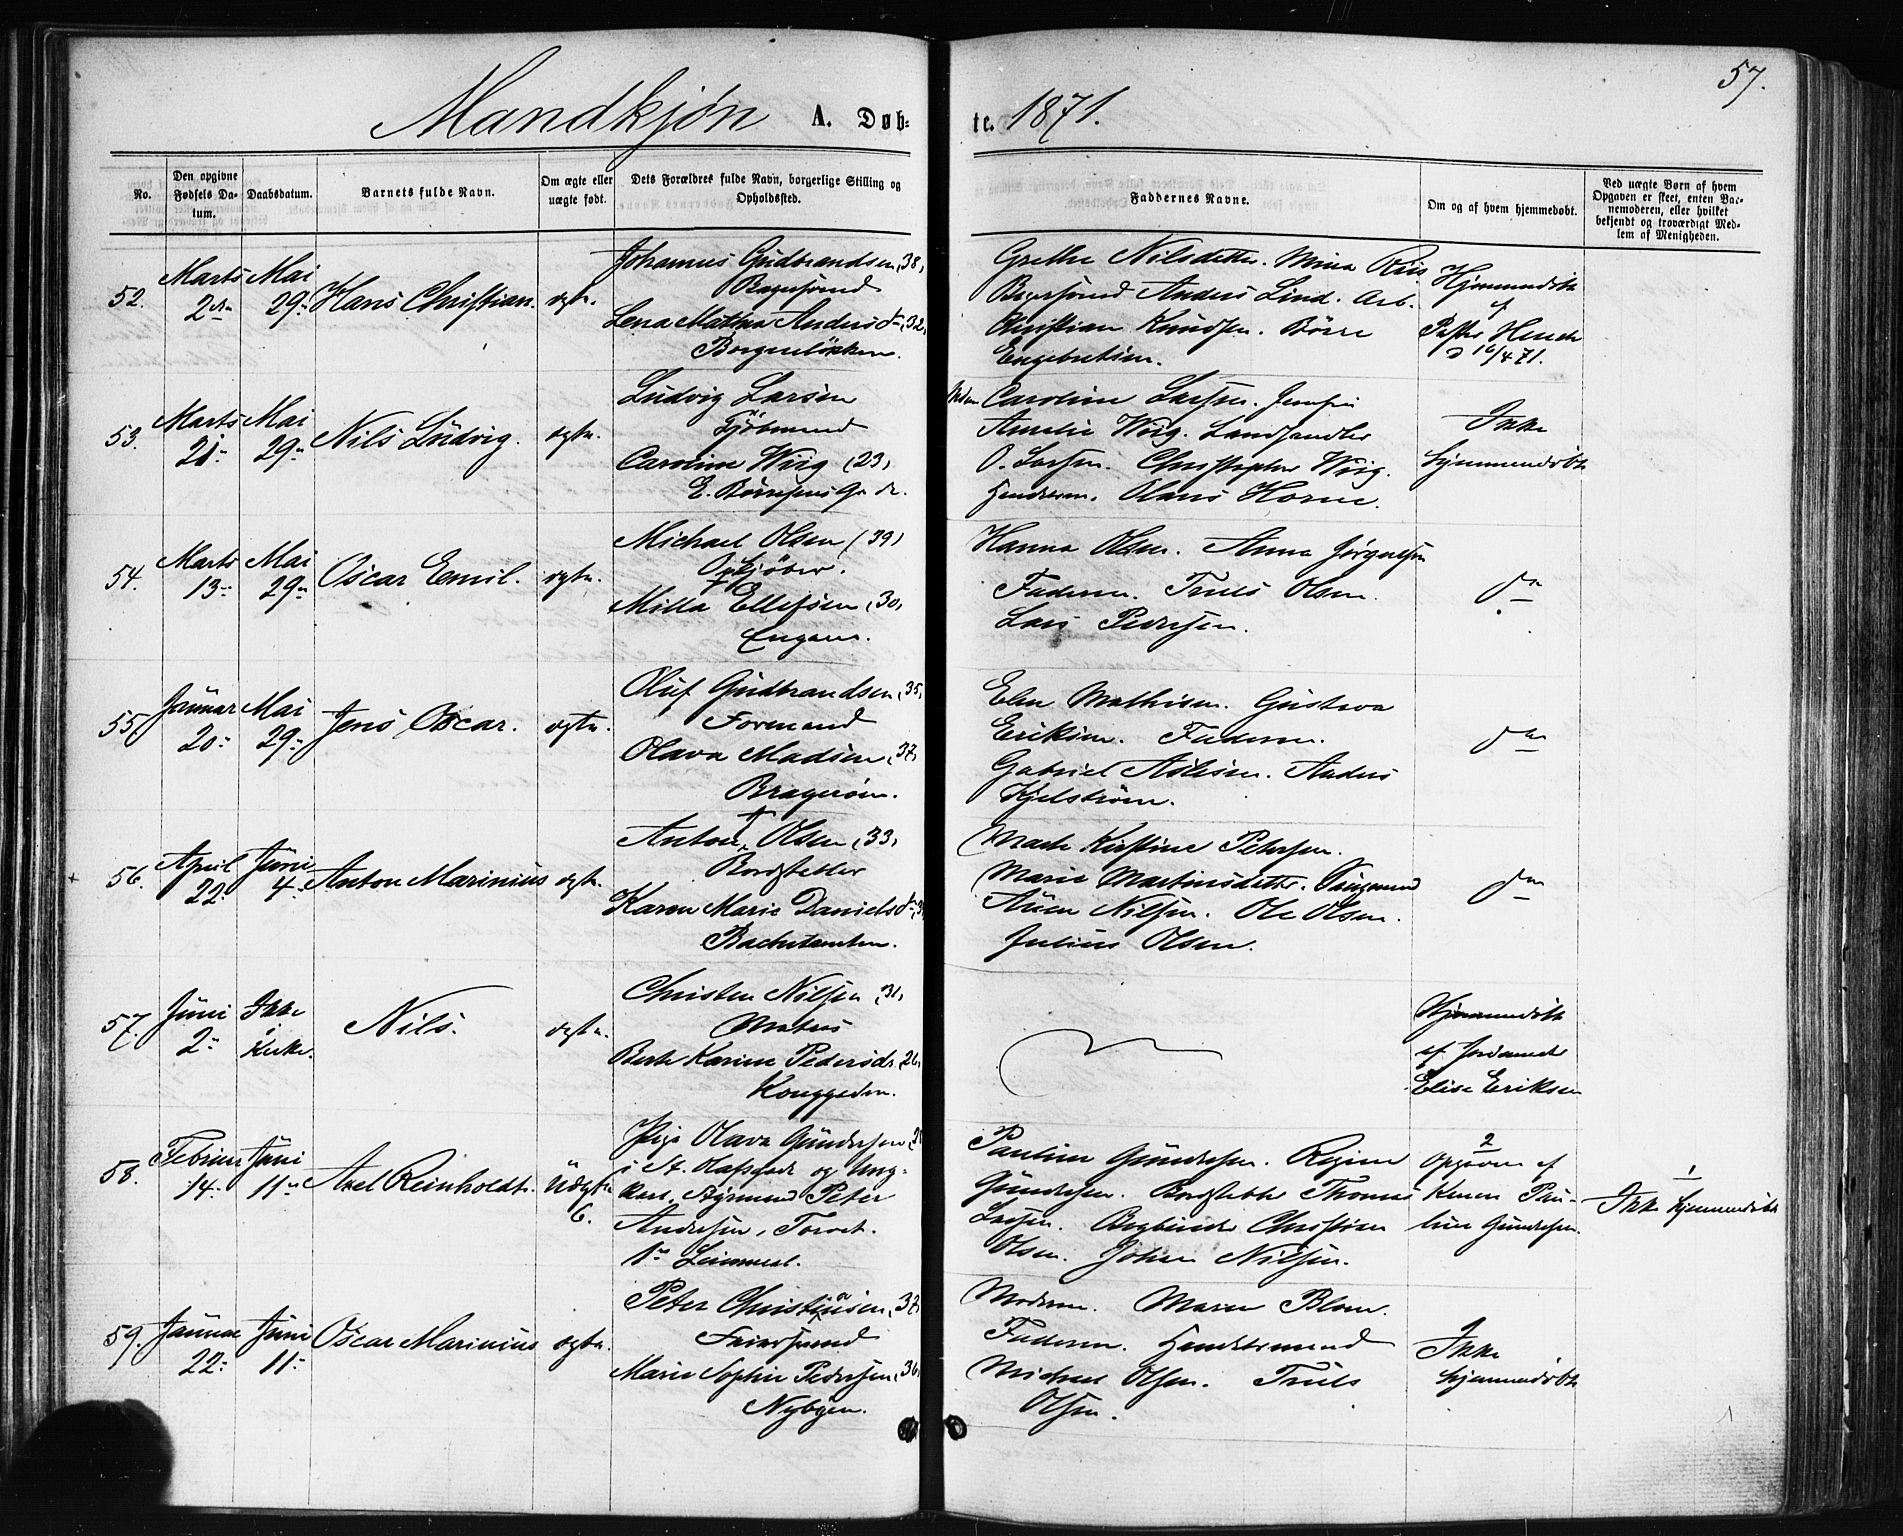 57.
Mandkjön A. Døb= te. 1871.
No.
Den opgivne Fødsels Da- tum.
Daabsdatum.
Barnets fulde Navn.
Om ægte eller uægte født.
Dets Forældres fulde Navn, borgerlige Stilling og Opholdssted.
Faddernes Navne.
Om og af hvem hjemmedøbt.
Ved uægte Børn af hvem Opgaven er skeet, enten Bar- nemoderen, eller hvilket bekjendt og troværdigt Med- lem af Menigheden.
52.
Marts 2den
Mai 29.
Hans Christian.
ægte.
Johannes Gudbrandsen (38)
Lena Mathea Anders d. (32)
Borgerløkken.
Grethe Nilsdatter. Mina Riis
Anders Lind. Arb.
Christian Knudsen. Börre
Engebretsen.
Hjemmedøbt
af
Pastor Heuch
d 16/4 71.
53.
Marts 21.
Mai 29.
Nils Ludvig.
ægte.
Ludvig Larsen
Kjöbmand
Caroline Wiig (23)
E. Börresens G. de.
Caroline Larsen.
Amalie Wiig. Landhandler
O. Larsen. Christopher Wiig.
Olaus Horne.
Ikke
hjemmedöbt
54.
Marts 13.
Mai 29.
Oscar Emil.
ægte.
Michael Olsen (39)
Opkjöber.
Milla Ellefsen (30)
Engene.
Hanna Olsen. Anna Jörgensen
Faderen. Truls Olsen.
Lars Pedersen.
do
55.
Januar 20.
Mai 29.
Jens Oscar.
ægte.
Oluf Gudbrandsen (35)
Formand
Olava Madsen (37)
Bragerøen.
Elen Mathisen. Gustava
Eriksen. Faderen.
Gabriel Aslesen. Anders
Kjelström.
do
56.
April 22.
Juni 4.
Anton Marinius
ægte.
Anton Olsen (33)
Bordstabler
Karen Marie Daniels d.
Bachetomten.
Marte Kirstine Petersen.
Marie Martinsdatter.
Nilsen. Ole Olsen.
Julius Olsen.
do
57.
Juni 2.
Ikke
i
Kirke.
Nils.
ægte.
Christen Nilsen (31)
Matros
Berte Karine Pedersdr. (26)
Konggaden.
Hjemmedöbt
af Jordemoder
Elise Eriksen
58.
Februar 14.
Juni 11.
Axel Reinholdt.
Uægte
6.
Pige Olava Gundersen
i St. Olafsgade og Ung-
karl, Styrmand Peter
Andresen, Torvet.
1ste Leiermaal.
Pauline Gundersen. Regine
Gundersen. Bordstabler Thomas
Larsen. Bogbinder Christian
Olsen. Johan Nilsen.
2
Opgaven af
Karen Pau-
line Gundersen.
1
Ikke hjemmedöbt
59.
Januar 22.
Juni 11.
Oscar Marinius
ægte.
Peter Christiansen (37)
Marie Sophie Pedersen (36)
Nybyen.
Moderen. Maren Blom.
Faderen. Handelsmand
Michael Olsen. Truls
Olsen.
Ikke
hjemmedöbt